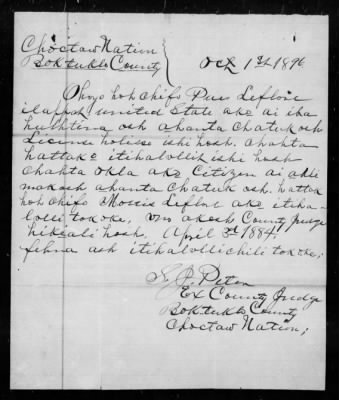 Choctaw Nation
Boktuklo County
Oct 1st 1896
Ohoyo hoh chifo Puss Leflore
ilappat united State ako ai iba
hulhtena osh ahanta chatuk osh
Licens holisso ishi hosh. Chahta
hattak itihalolli ishi hosh
Chahta Okla ako Citizen ai ahli
makosh ahanta chatuk osh. hattak
hoh chifo Morris Leflore ako itiha-
lolli tok oke. Vno akosh County Judge
hikiali hosh. April 3rd 1884
fehna ash itihalollichili tok oke;
S. J. Peter
Ex County Judge
Boktuklo County
Choctaw Nation;